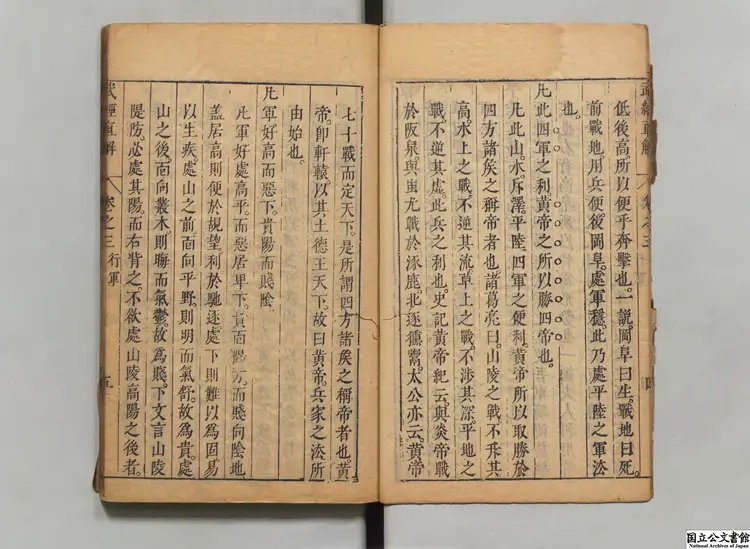 武經直解
卷之三
低後高所以便乎奔擊也。一說岡阜曰生。戰地曰死。
前戰地。用兵便後岡阜。處軍穩。此乃處平陸之軍法
也。
凡此四軍之利黃帝之所以勝四帝也。
凡此山。水。斥澤。平陸四軍之便利。黃帝所以取勝於
四方諸矦之稱帝者也諸葛亮曰。山陵之戰不升其
高。水上之戰。不逆其流。草上之戰。不涉其深。平地之
戰。不逆其虛。此兵之利也。史記黃帝紀云。與炎帝戰
於阪泉。與蚩尤戰於涿鹿。北逐獯鬻。太公亦云。黃帝
七十戰而定天下。是所謂四方諸矦之稱帝者也黃
帝。卽軒轅。以其土德王天下。故曰黃帝。兵家之法所
由始也。
凡軍好高而惡下。貴陽而賤陰
凡軍好處高平。而惡居卑下。貴面陽方。而賤向陰地
盖居高則便於覘望利於馳逐處下則難以為固易
以生疾。處山之前。面向平野。則明而氣舒。故為貴。處
山之後。面向叢木。則晦而氣鬱。故為賤。下文言山陵
隄防。必處其陽。而右背之。不欲處山陵高陽之後者。
武經直解
卷之三 行軍
五
国立公文書館
National Archives of Japan